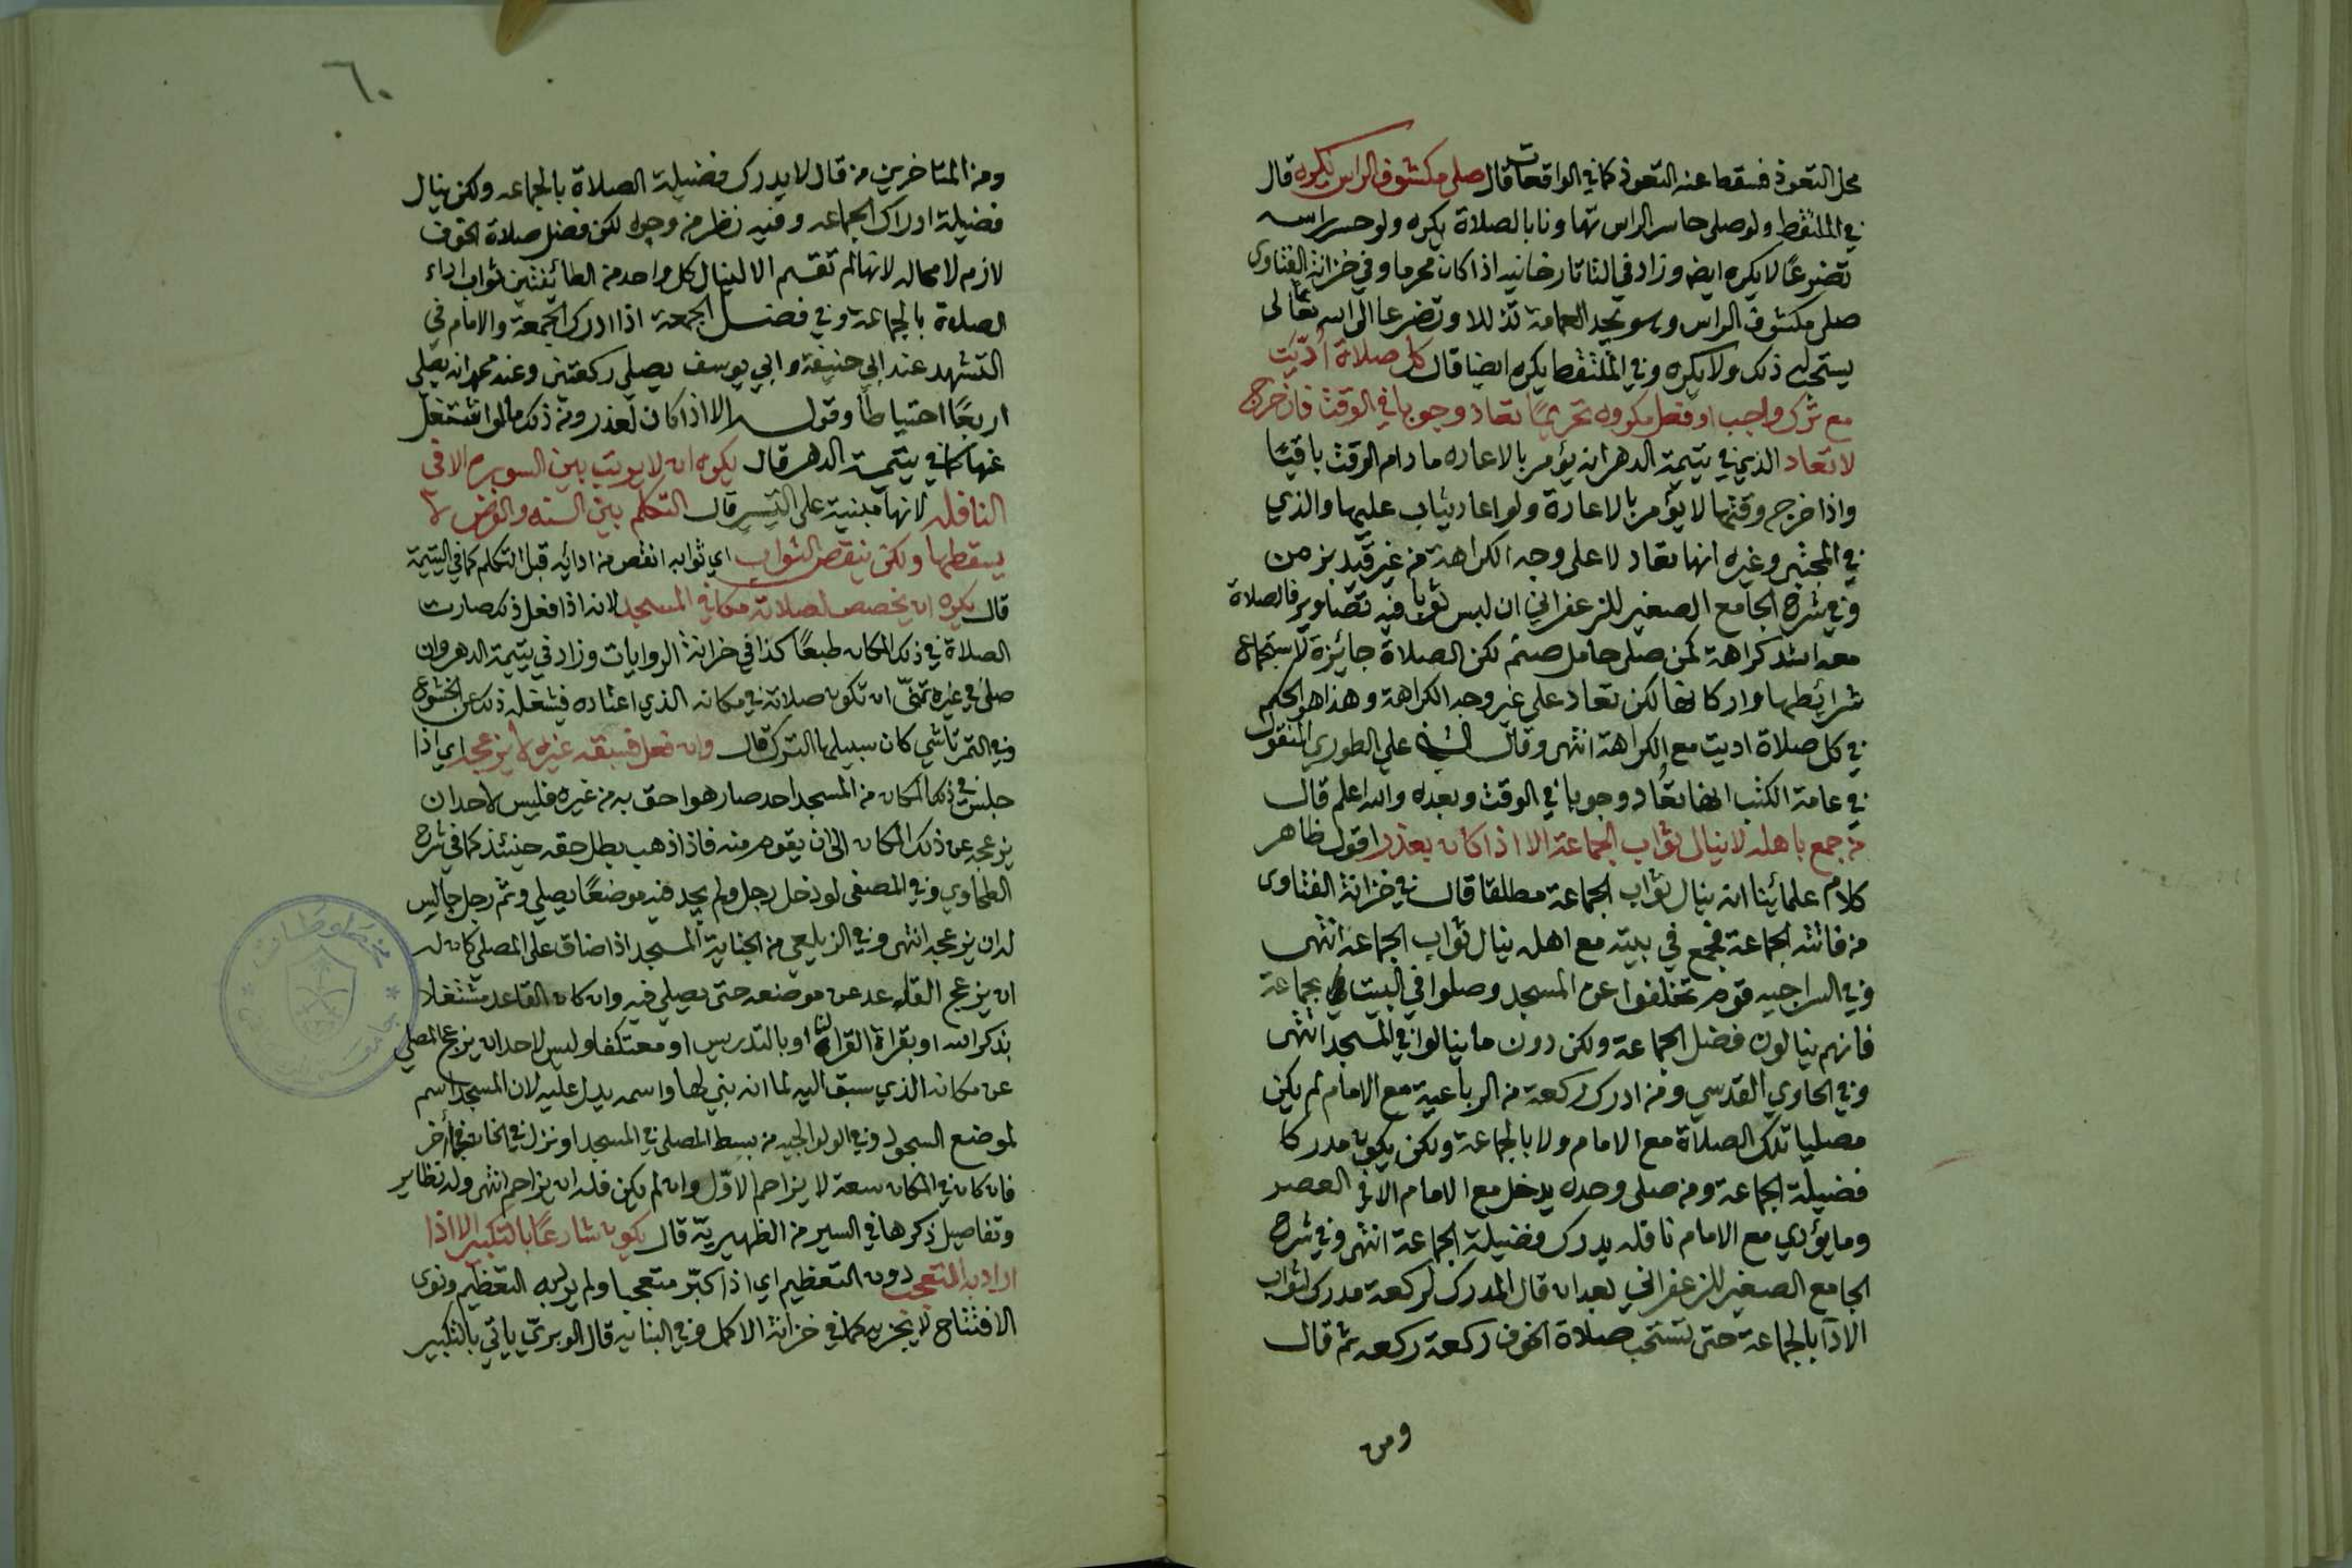 محل التعوذ فسقط عنه التعوذ كما في الواقعات قال صلى مكشوف الراس يكره قال
في الملتقط ولو صلى حاسر الراس تهاونا بالصلاة يكره ولو حسر راسه
تضرعًا لا يكره ايضا وزاد في التاتارخانيه اذا كان محرما وفي خزانة الفتاوى
صلى مكشوف الراس وهو يجد العمامة تذللا وتضرعا الى الله تعالى
يستحب له ذلك ولا يكره وفي الملتقط يكره ايضا قال كل صلاة أدّيت
مع ترك واجب او فعل مكروه تحريمًا تعاد وجوبا في الوقت فان خرج
لا تعاد الذي في يتيمة الدهر انه يؤمر بالاعاده ما دام الوقت باقيًا
واذا خرج وقتها لا يؤمر بالاعادة ولو اعاد يثاب عليها والذي
في المجتبى وغيره انها تعاد لا على وجه الكراهة من غير قيد بزمن
وفي شرح الجامع الصغير للزعفراني ان لبس ثوبا فيه تصاوير فالصلاة
معه اشد كراهة كمن صلى حامل صنم لكن الصلاة جائزة لاستجماع
شرائطها واركانها لكن تعاد على غير وجه الكراهة وهذا هو الحكم
في كل صلاة اديت مع الكراهة انتهى وقال الشيخ علي الطوري المنقول
في عامة الكتب انها تعُاد وجوبا في الوقت وبعده والله اعلم قال
من جمع باهله لا ينال ثواب الجماعة الا اذا كان بعذر اقول ظاهر
كلام علمائنا انه ينال ثواب الجماعة مطلقا قال في خزانة الفتاوى
من فاتته الجماعة فجمع في بيته مع اهله ينال ثواب الجماعة انتهى
وفي السراجيه قوم تخلفوا عن المسجد وصلوا في البيت بجماعة
فانهم ينالون فضل الجماعة ولكن دون ما ينالوا في المسجد انتهى
وفي الحاوي القدسي ومن ادرك ركعة من الرباعية مع الامام لم يكن
مصليا تلك الصلاة مع الامام ولا بالجماعة ولكن يكون مدركا
فضيلة الجماعة ومن صلى وحده يدخل مع الامام الا في العصر
وما يؤدي مع الامام نافله يدرك فضيلة الجماعة انتهى وفي شرح
الجامع الصغير للزعفراني بعد ان قال المدرك لركعة مدرك لثواب
الادآ بالجماعة حتى تستحب صلاة الخوف ركعة ركعه ثم قال
ومن
٦٠
ومن المتاخرين من قال لا يدرك فضيلة الصلاة بالجماعه ولكن ينال
فضيلة ادراك الجماعه وفيه نظر من وجوه لكن فضل صلاة الخوف
لازم لا محاله لانها لم تقسم الا لينال كل واحد من الطائفتين ثواب اداء
الصلاة بالجماعة وفي فضل الجمعة اذا ادرك الجمعة والامام في
التشهد عند ابي حنيفة وابي يوسف يصلي ركعتين وعند محمد انه يصلي
اربعًا احتياطا وقوله الا اذا كان لعذر ومن ذلك ما لو اشتغل
عنها كما في يتيمة الدهر قال يكره ان لا يرتب بين السور الا في
النافله لانها مبنية على التيسير قال التكلم بين السنه والفرض لا
يسقطها ولكن ينقص الثواب اي ثوابه انقص من ادائه قبل التكلم كما في اليتيمة
قال يكره ان يخصص لصلاته مكانا في المسجد لانه اذا فعل ذلك صارت
الصلاة في ذلك المكان طبعًا كذا في خزانة الروايات وزاد في يتيمة الدهر وان
صلى في غيره تمنّى ان تكون صلاته في مكانه الذي اعتاده فيشغله ذلك عن الخشوع
وفي التمرتاشي كان سبيلها الترك قال وان فعل فسبقه غيره لا يزعجه اي اذا
جلس في ذلك المكان من المسجد احد صار هو احق به من غيره فليس لاحد ان
يزعجه عن ذلك المكان الى ان يقوم منه فاذا ذهب بطل حقه حينئذ كما في شرح
الطحاوي وفي المصفى لو دخل رجل ولم يجد فيه موضعًا يصلي وثم رجل جالس
له ان يزعجه انتهى وفي الزيلعي من الجناية المسجد اذا ضاق على المصلي كان له
ان يزعج القاعد عن موضعه حتى يصلي فيه وان كان القاعد مشتغلا
بذكر الله او بقراة القران او بالتدريس او معتكفا وليس لاحد ان يزعج المصلي
عن مكانه الذي سبق اليه لما انه بني لها واسمه يدل عليه لان المسجد اسم
لموضع السجود وفي الولوالجيه من بسط المصلى في المسجد او نزل في الخان فجا آخر
فان كان في المكان سعة لا يزاحم الاوّل وان لم يكن فله ان يزاحم انتهى وله نظاير
وتفاصيل ذكرها في السير من الظهيريّة قال يكون شارعًا بالتكبير الا اذا
اراد به التعجب دون التعظيم اي اذا كبّر متعجبا ولم يرد به التعظيم ونوى
الافتتاح لا يجزيه كما في خزانة الاكمل وفي البنايه قال الوبريّ ياتي بالتكبير